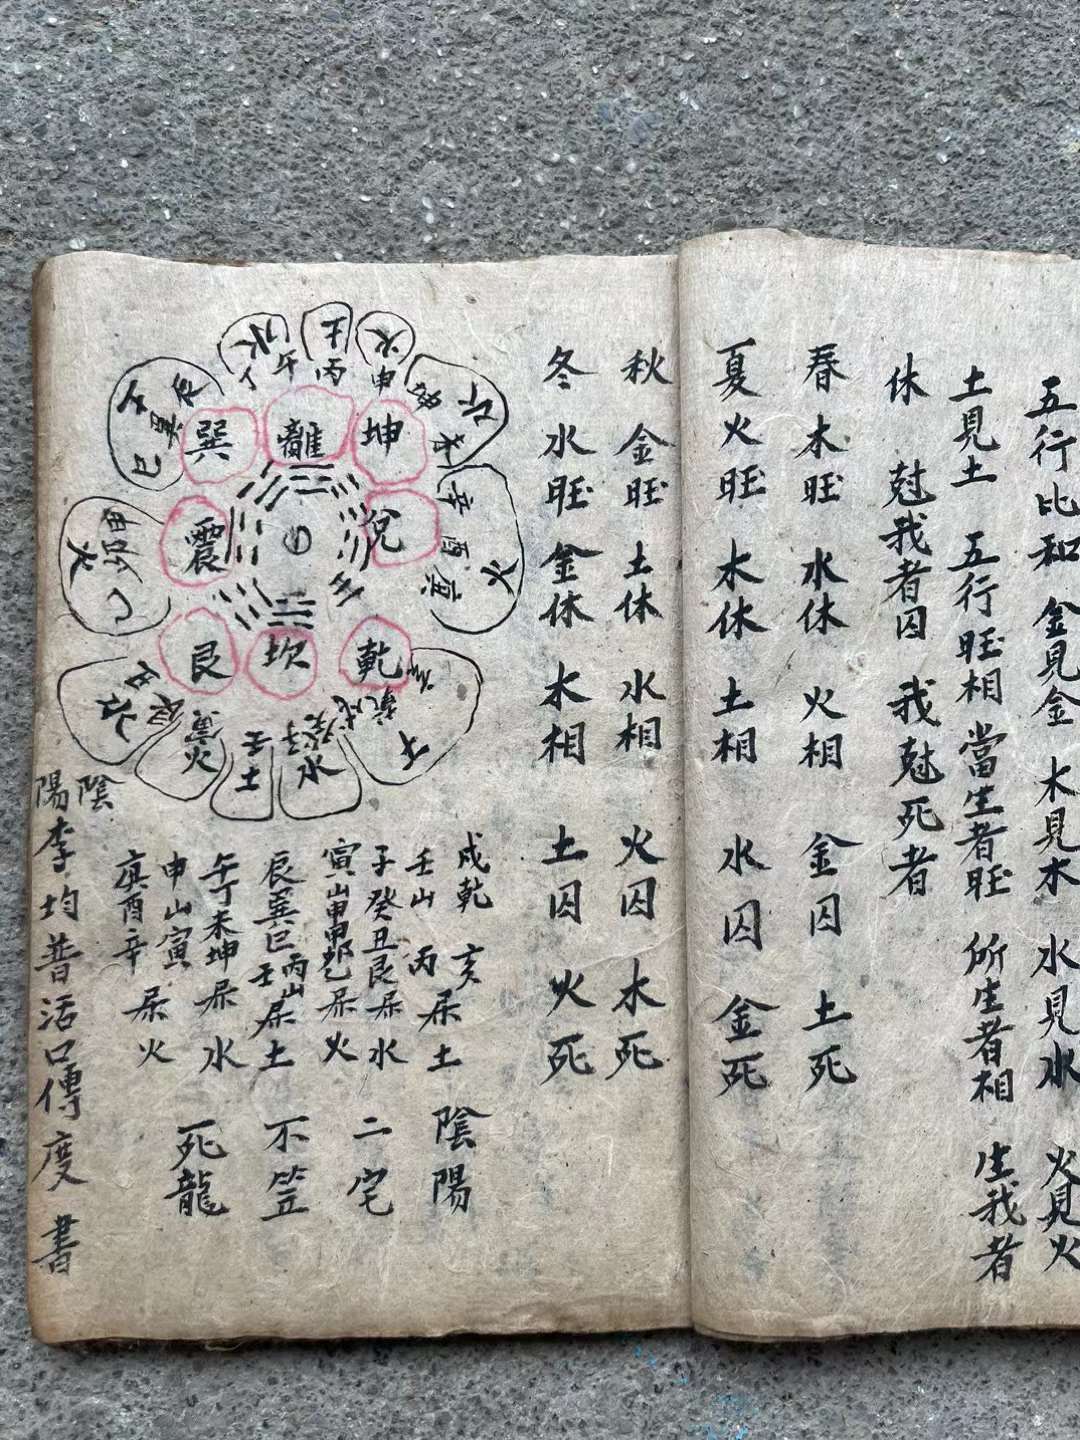 五行比和 金見金 木見木 水見水 火見火
土見土 五行旺相 當生者旺 所生者相 生我者
休 尅我者囚 我尅死者
春木旺 水休 火相 金囚 土死
夏火旺 木休 土相 水囚 金死
秋金旺 土休 水相 火囚 木死
冬水旺 金休 木相 土囚 火死
火
土
水
離
坤
兌
乾
坎
艮
震
巽
戌乾 亥
壬山 丙 屎土
子癸丑艮屎水
寅山甲 屎火
辰巽巳 丙山 壬 屎土
午丁未坤屎水
申山寅 屎火
庚酉辛
陰陽
二宅
不笠
死龍
陰
陽李均普活口傳度 書